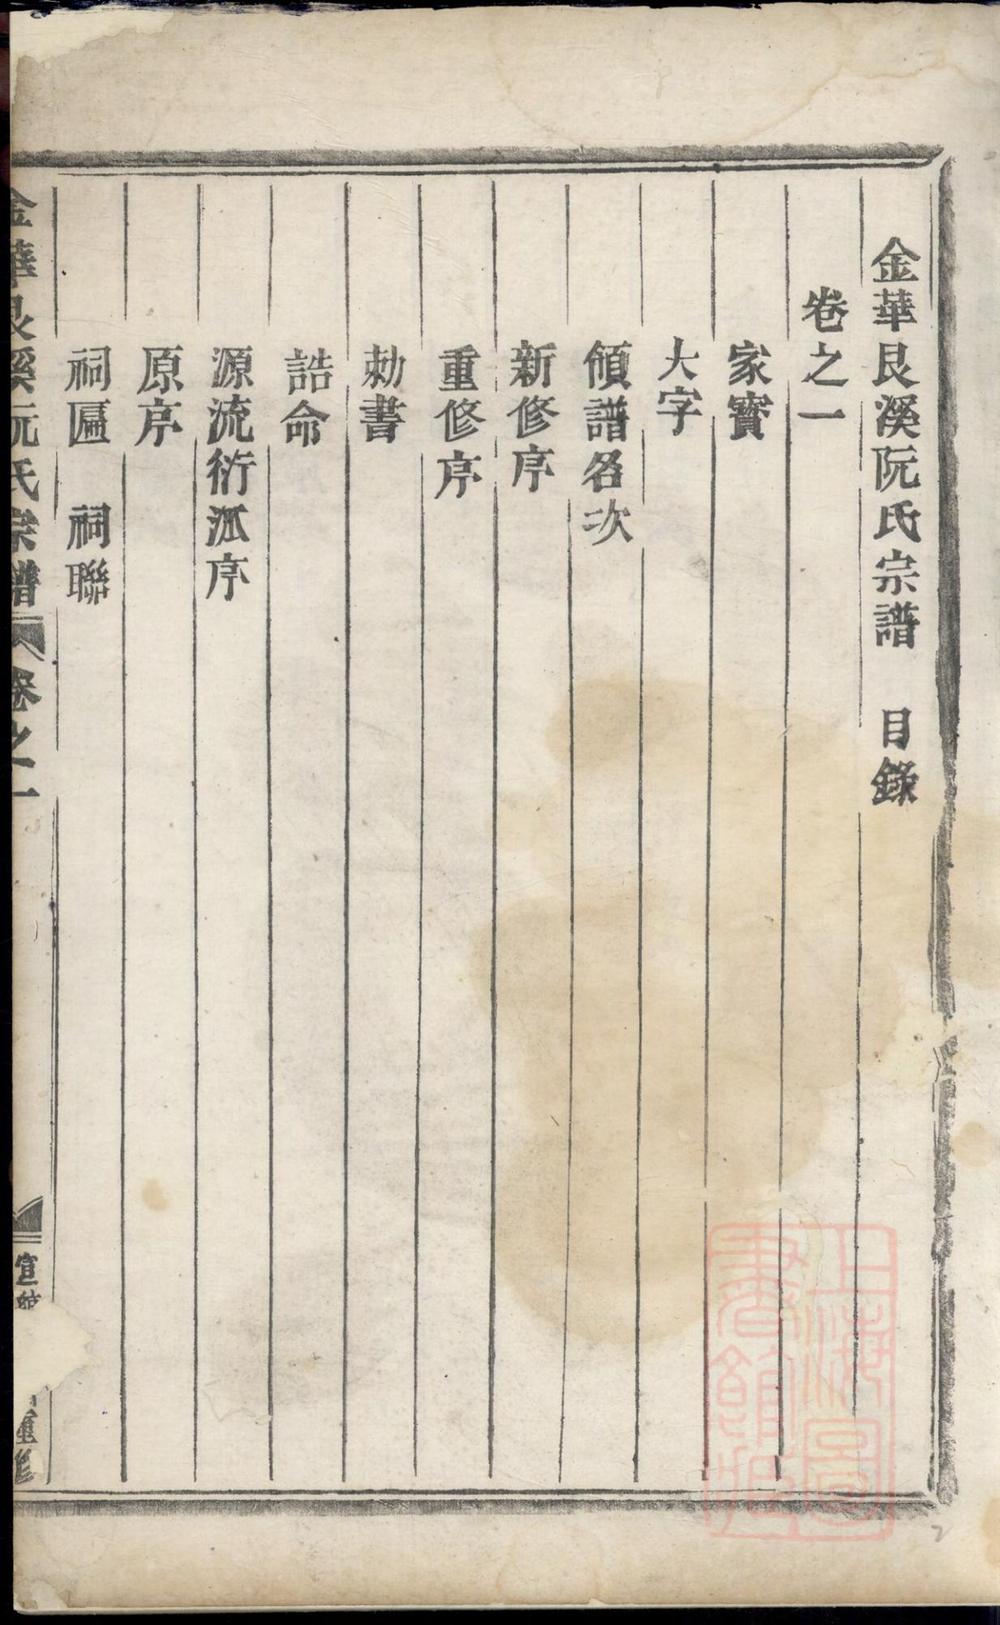 金華艮溪阮氏宗譜　目錄
卷之一
家寶
大字
領譜名次
新修序
重修序
勅書
誥命
源流衍派序
原序
祠匾　祠聯
金華艮溪阮氏宗譜　卷之一
宣統
重修
上海圖
書館藏